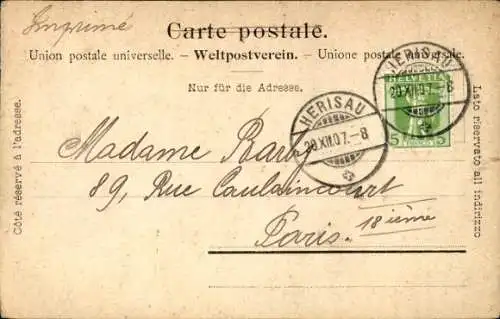 Imprimé
Carte postale.
Union postale universelle. - Weltpostverein. - Unione postale universale.
Nur für die Adresse.
Côté réservé à l'adresse.
Lato riservato all indirizzo
HELVETIA
5 5
FRANCO
HERISAU
20.XII.07.-8
HERISAU
20.XII.07.-8
Madame
89, Rue Caulaincourt
Paris. 18ième